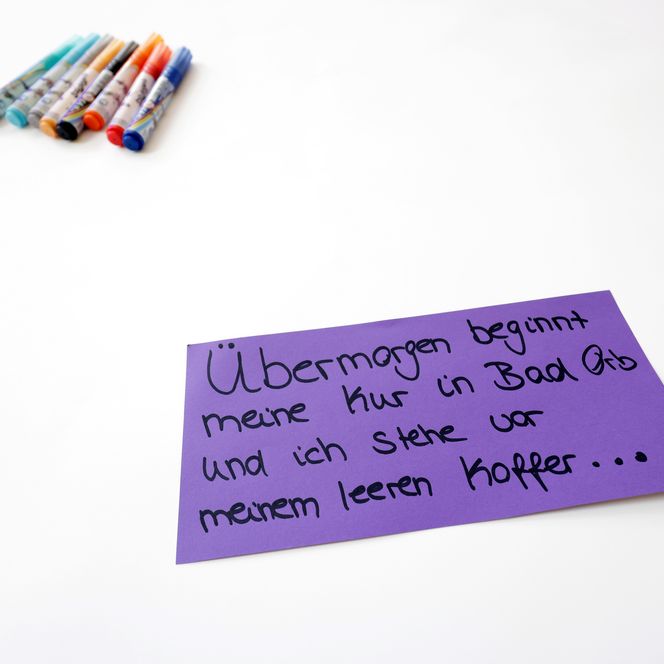 Übermorgen beginnt
meine Kur in Bad Orb
und ich stehe vor
meinem leeren Koffer...